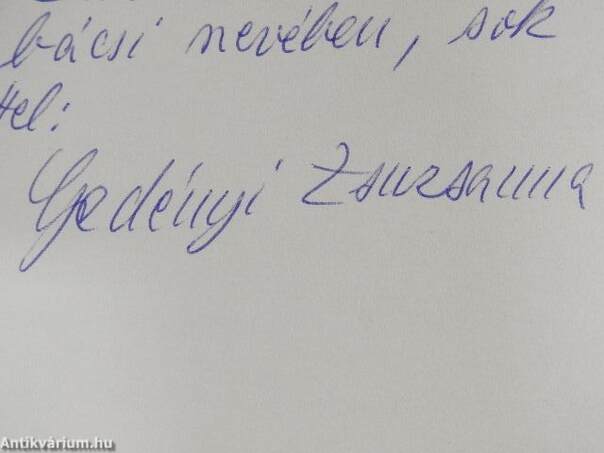 bácsi nevében, sok
tel:
Gedényi Zsuzsanna
Antikvárium.hu